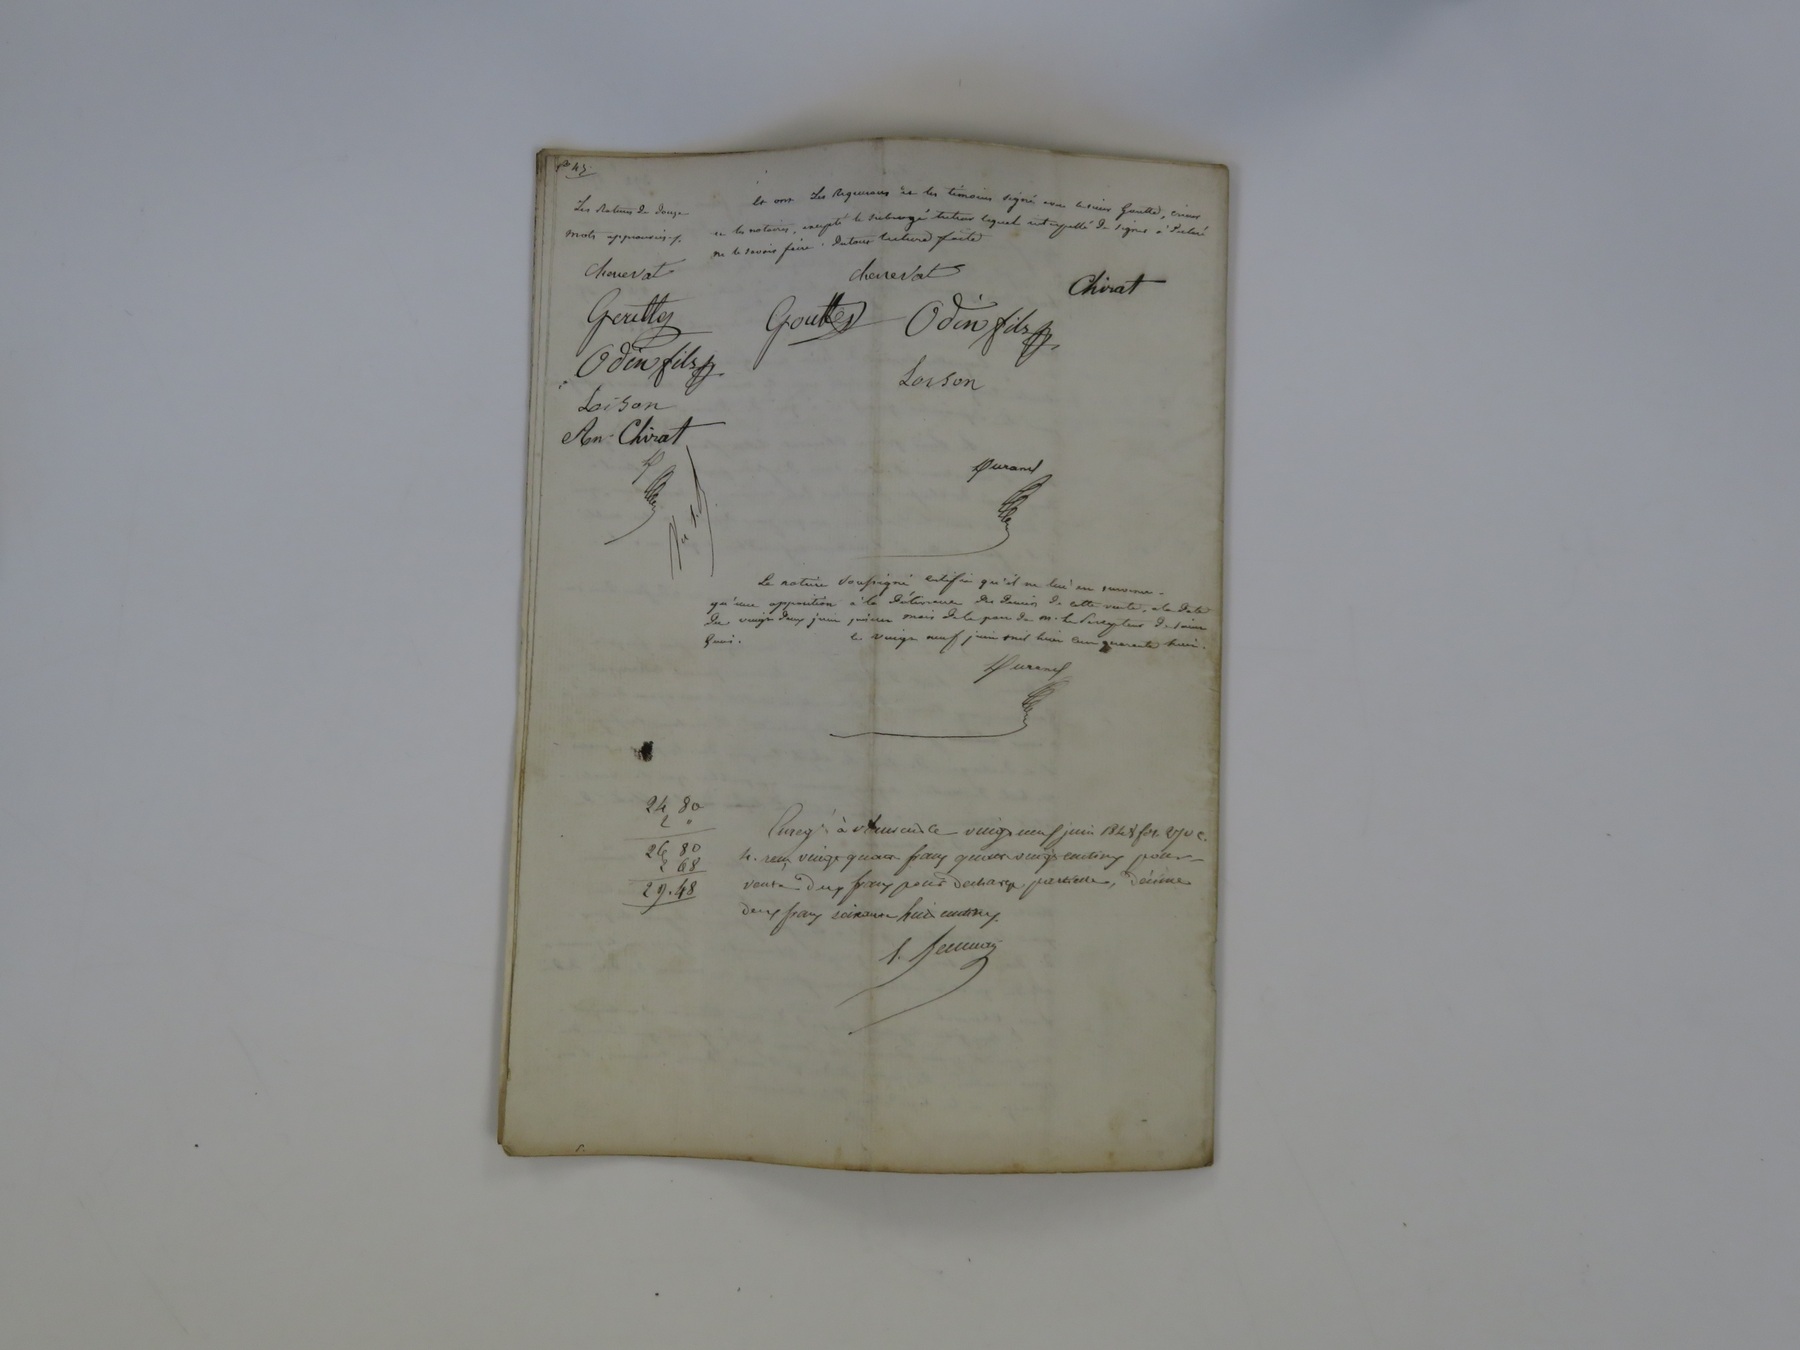 Les Ratures de douze
mots approuvées.
Et ont les Requerans et les témoins signé avec le sieur Goutte, crieur
et les notaires, excepté le subrogé tuteur lequel interpellé de signer a déclaré
ne le savoir faire. de tout lecture faite
chenevat
chenevat
Chirat
Goutte
Odin fils
Odin fils
Loison
Loison
An. Chirat
Durand
Le notaire soussigné certifie qu'il ne lui est survenu
qu'une opposition à la délivrance des deniers de cette vente, à la date
du vingt deux juin présent mois de la part de M. le Percepteur de saint
le vingt neuf juin mil huit cent quarante huit.
Durand
24 80
2 "
26 80
2 68
29.48
Enreg. à le vingt neuf juin 1848 fo.
4. reçu vingt quatre francs quatre vingt centimes pour
vente deux francs pour decharge partielle, décime
deux francs soixante huit centimes.